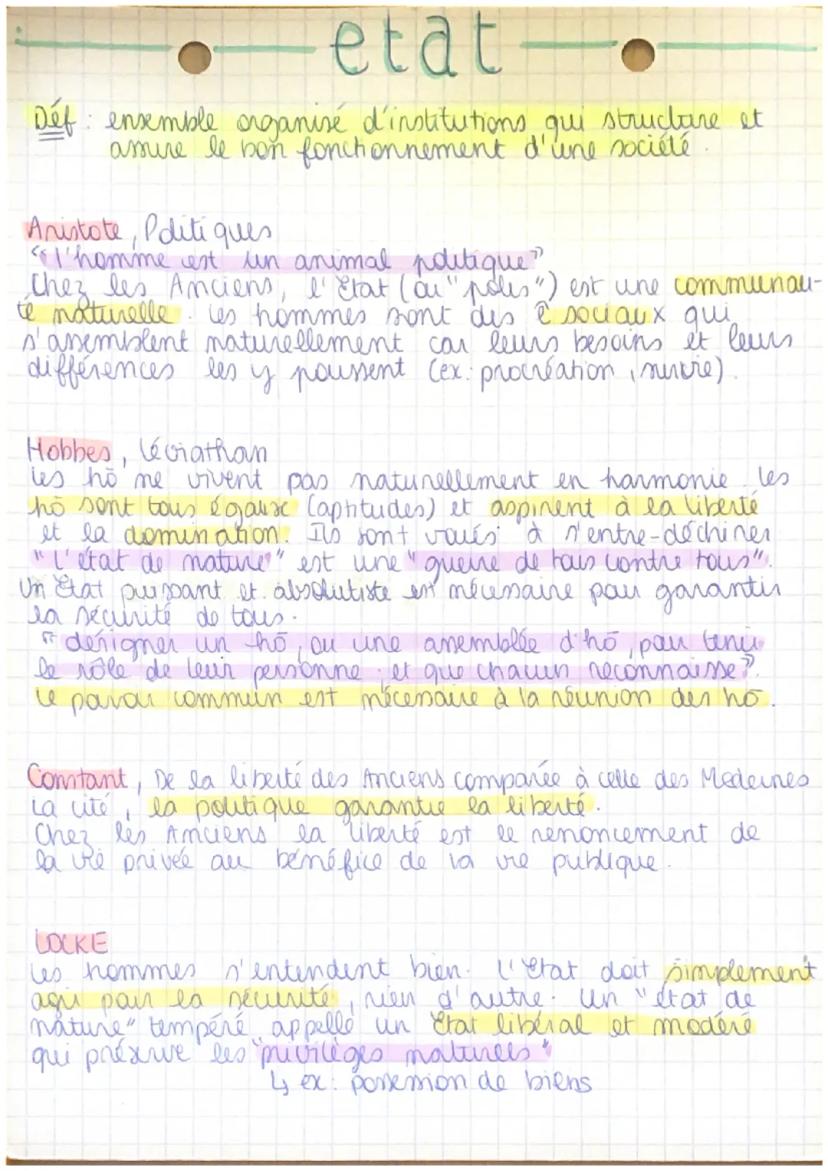 etat
Déf : ensemble organisé d'institutions qui structure et
assure le bon fonctionnement d'une société.
Aristote, Politiques
"l'homme est un animal politique"
Chez les Anciens, l'Etat (ou "polis") est une communau-
té naturelle. Les hommes sont des ê sociaux qui
s'assemblent naturellement car leurs besoins et leurs
différences les y poussent (ex: procréation, survie).
Hobbes, Léviathan
Les hō ne vivent pas naturellement en harmonie. Les
hō sont tous égaux (aptitudes) et aspirent à la liberté
et la domination. Ils sont voués à s'entre-déchirer
"L'état de nature" est une "guerre de tous contre tous".
Un Etat puissant et absolutiste est nécessaire pour garantir
la sécurité de tous.
"désigner un hō, ou une assemblée d'hō, pour tenir
le rôle de leur personne ; et que chacun reconnaisse".
Le pouvoir commun est nécessaire à la réunion des hō.
Constant, De la liberté des Anciens comparée à celle des Modernes
La cité, la politique garantie la liberté.
Chez les Anciens la liberté est le renoncement de
la vie privée au bénéfice de la vie publique.
LOCKE
Les hommes s'entendent bien. L'Etat doit simplement
agir pour la sécurité, rien d'autre. Un "état de
nature" tempéré appelle un Etat libéral et modéré
qui préserve les "privilèges naturels"
↳ ex: possession de biens